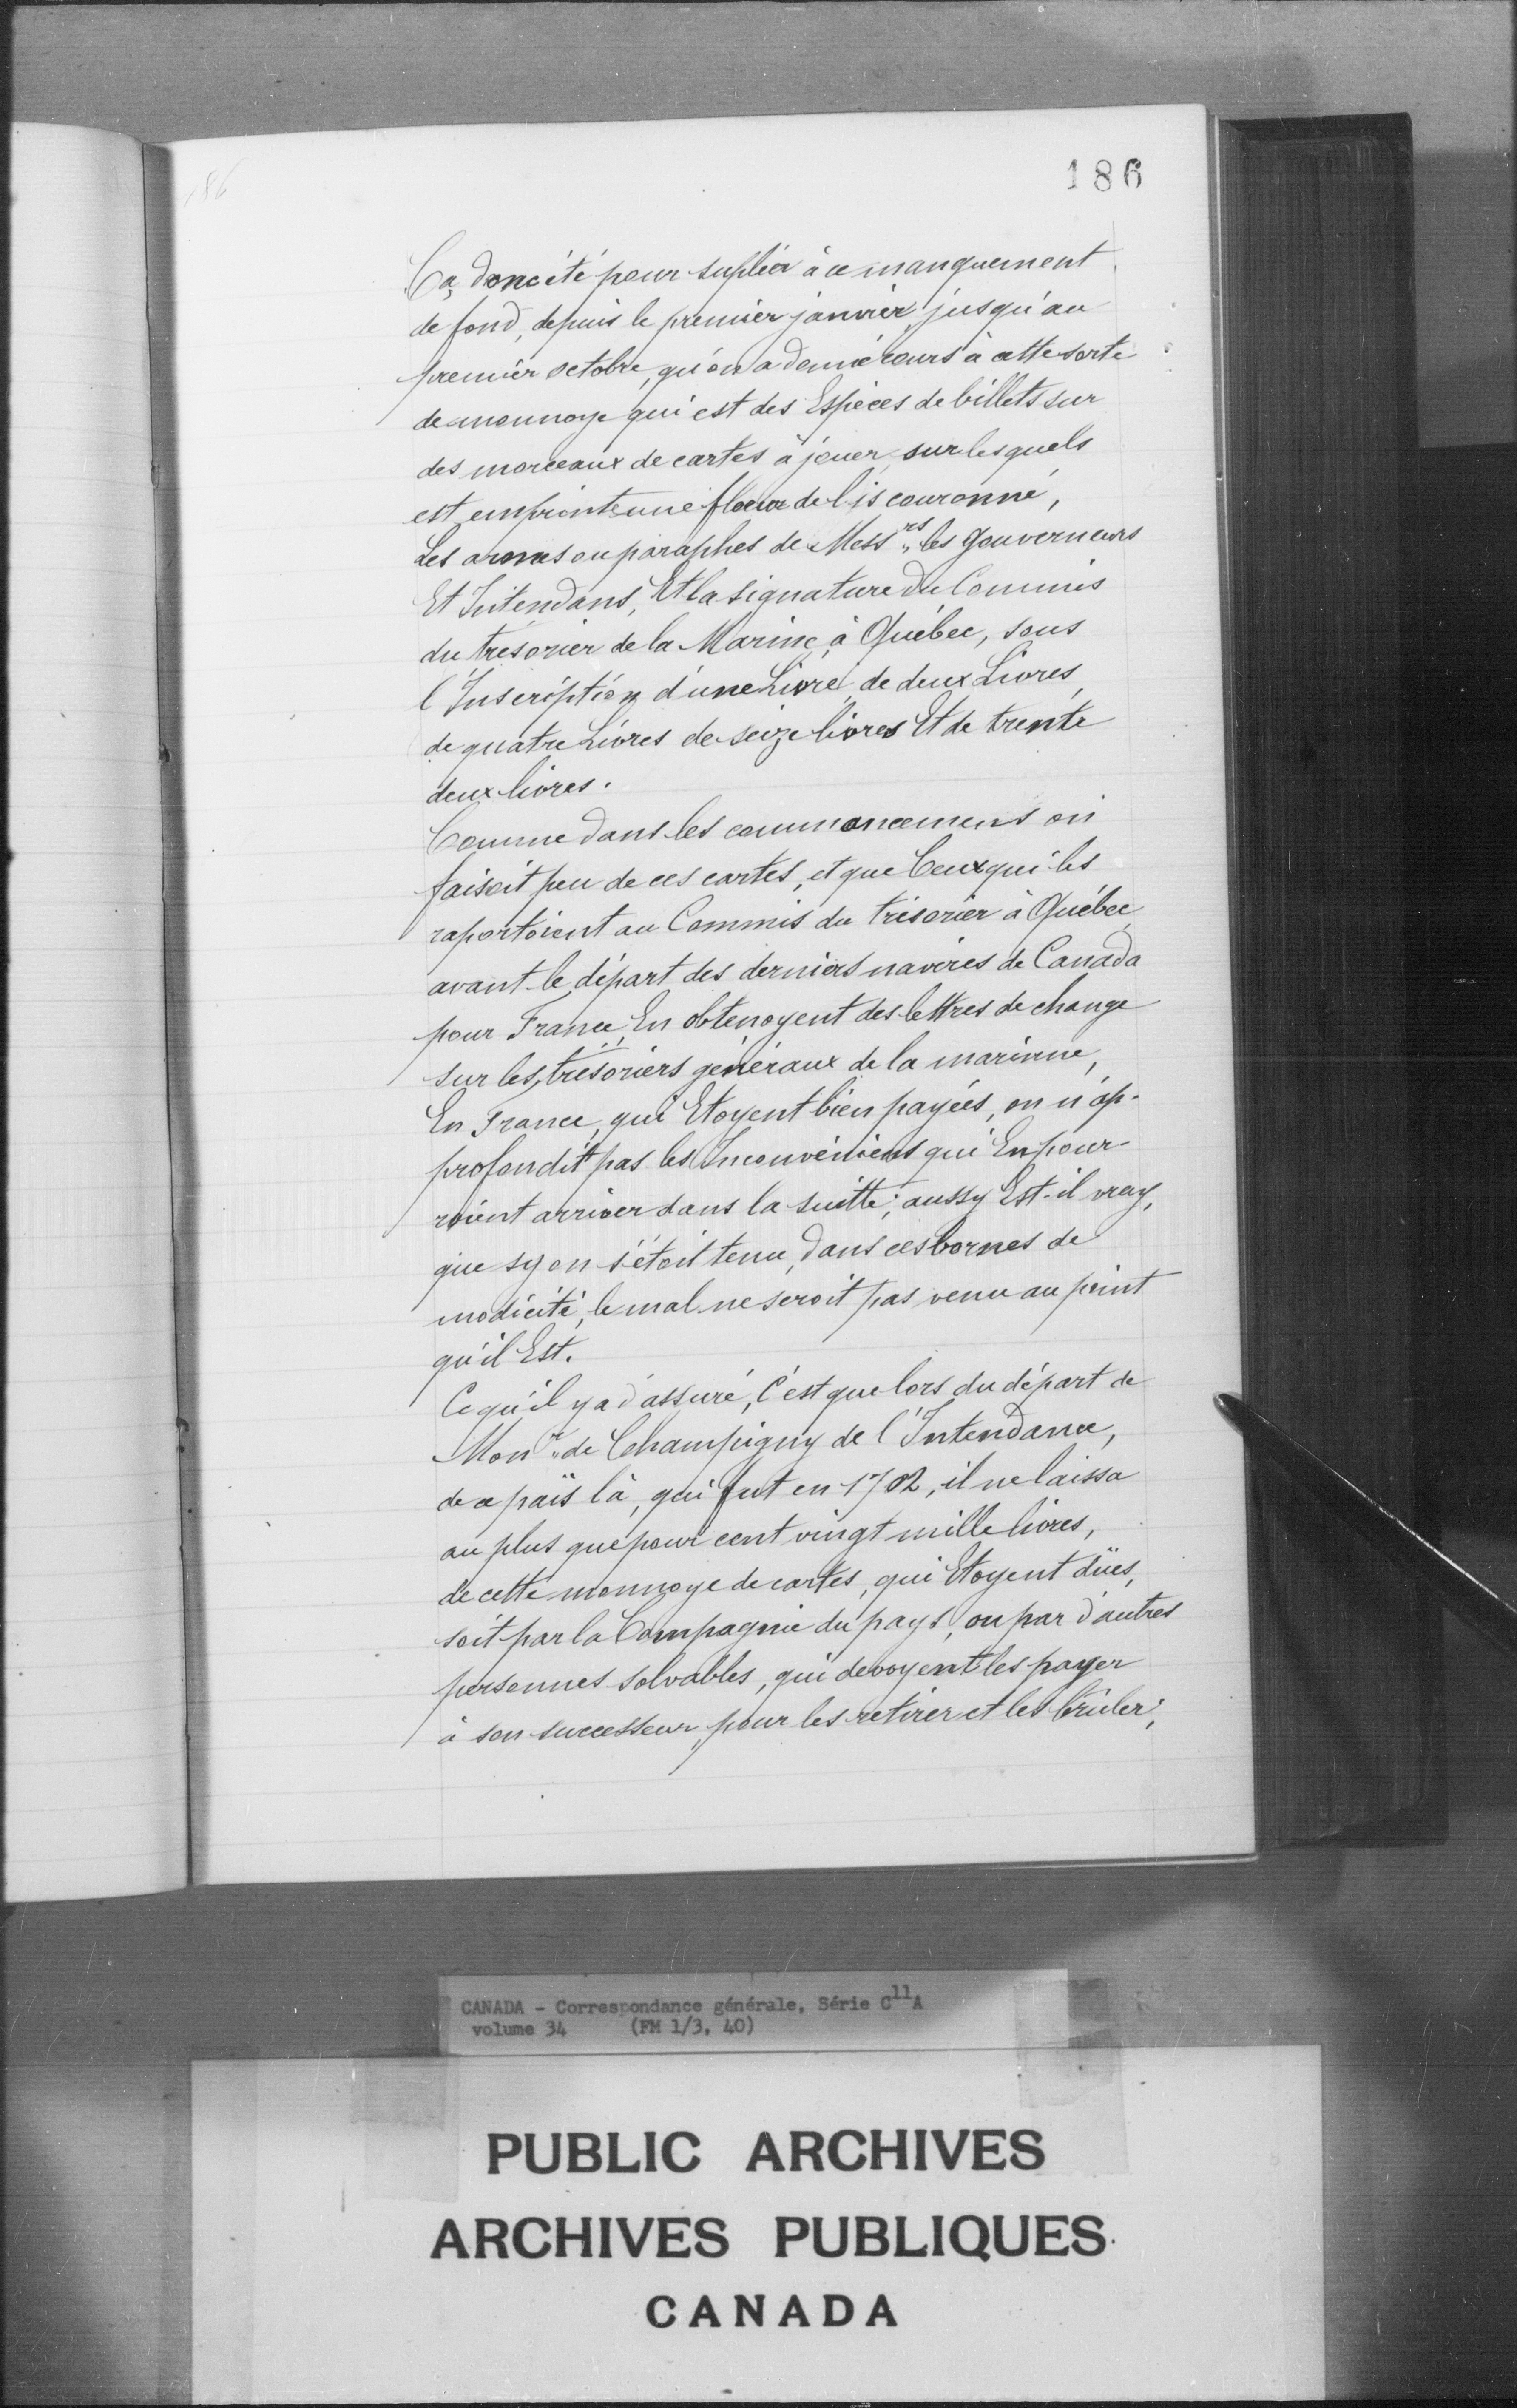 186
186
Ca donc été pour supléer à ce manquement
de fond, depuis le premier janvier jusqu'au
premier octobre, qu'on a donné cours à cette sorte
de monnoye qui est des Espèces de billets sur
des morceaux de cartes à jouer, sur lesquels
est empriente une fleur de lis couronné,
Les armes ou paraphes de Mess.rs les Gouverneurs
Et Intendans, Et la signature du Commis
du trésorier de la Marine à Québec, sous
l'Inscription d'une Livre, de deux Livres,
de quatre Livres de seize livres Et de trente
deux livres.
Comme dans les commancemens on
faisoit peu de ces cartes, et que Ceux qui les
raportoient au Commis du trésorier à Québec,
avant le départ des derniers navires de Canada
pour France, En obtenoyent des lettres de change
sur les trésoriers généraux de la marinne,
En France, qui Etoyent bien payées, on n'ap-
profondit pas les Inconvéniens qui En pour-
roient arriver dans la suitte; aussy Est-il vray,
que sy on s'étoit tenu, dans ces bornes de
modicité, le mal ne seroit pas venu au point
qu'il Est.
Ce qu'il y a d'assuré, C'est que lors du départ de
Mon.r de Champigny de l'Intendance,
de ce païs là, qui fut en 1702, il ne laissa
au plus que pour cent vingt mille livres,
de cette monnoye de cartes, qui Etoyent dües,
soit par la Compagnie du pays, ou par d'autres
personnes solvables, qui devoyent les payer
à son successeur, pour les retirer et les brûler;
CANADA - Correspondance générale, Série C11A
volume 34 (FM 1/3, 40)
PUBLIC ARCHIVES
ARCHIVES PUBLIQUES
CANADA